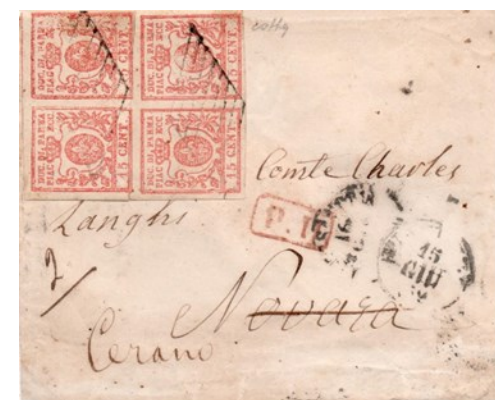 DUC. DI PARMA PIAC. ECC. 15 CENT. DUC. DI PARMA PIAC. ECC. 15 CENT.
DUC. DI PARMA PIAC. ECC. 15 CENT. DUC. DI PARMA PIAC. ECC. 15 CENT.
Comte Charles
Langhi
P. D.
15
GIU
Novara
Cerano